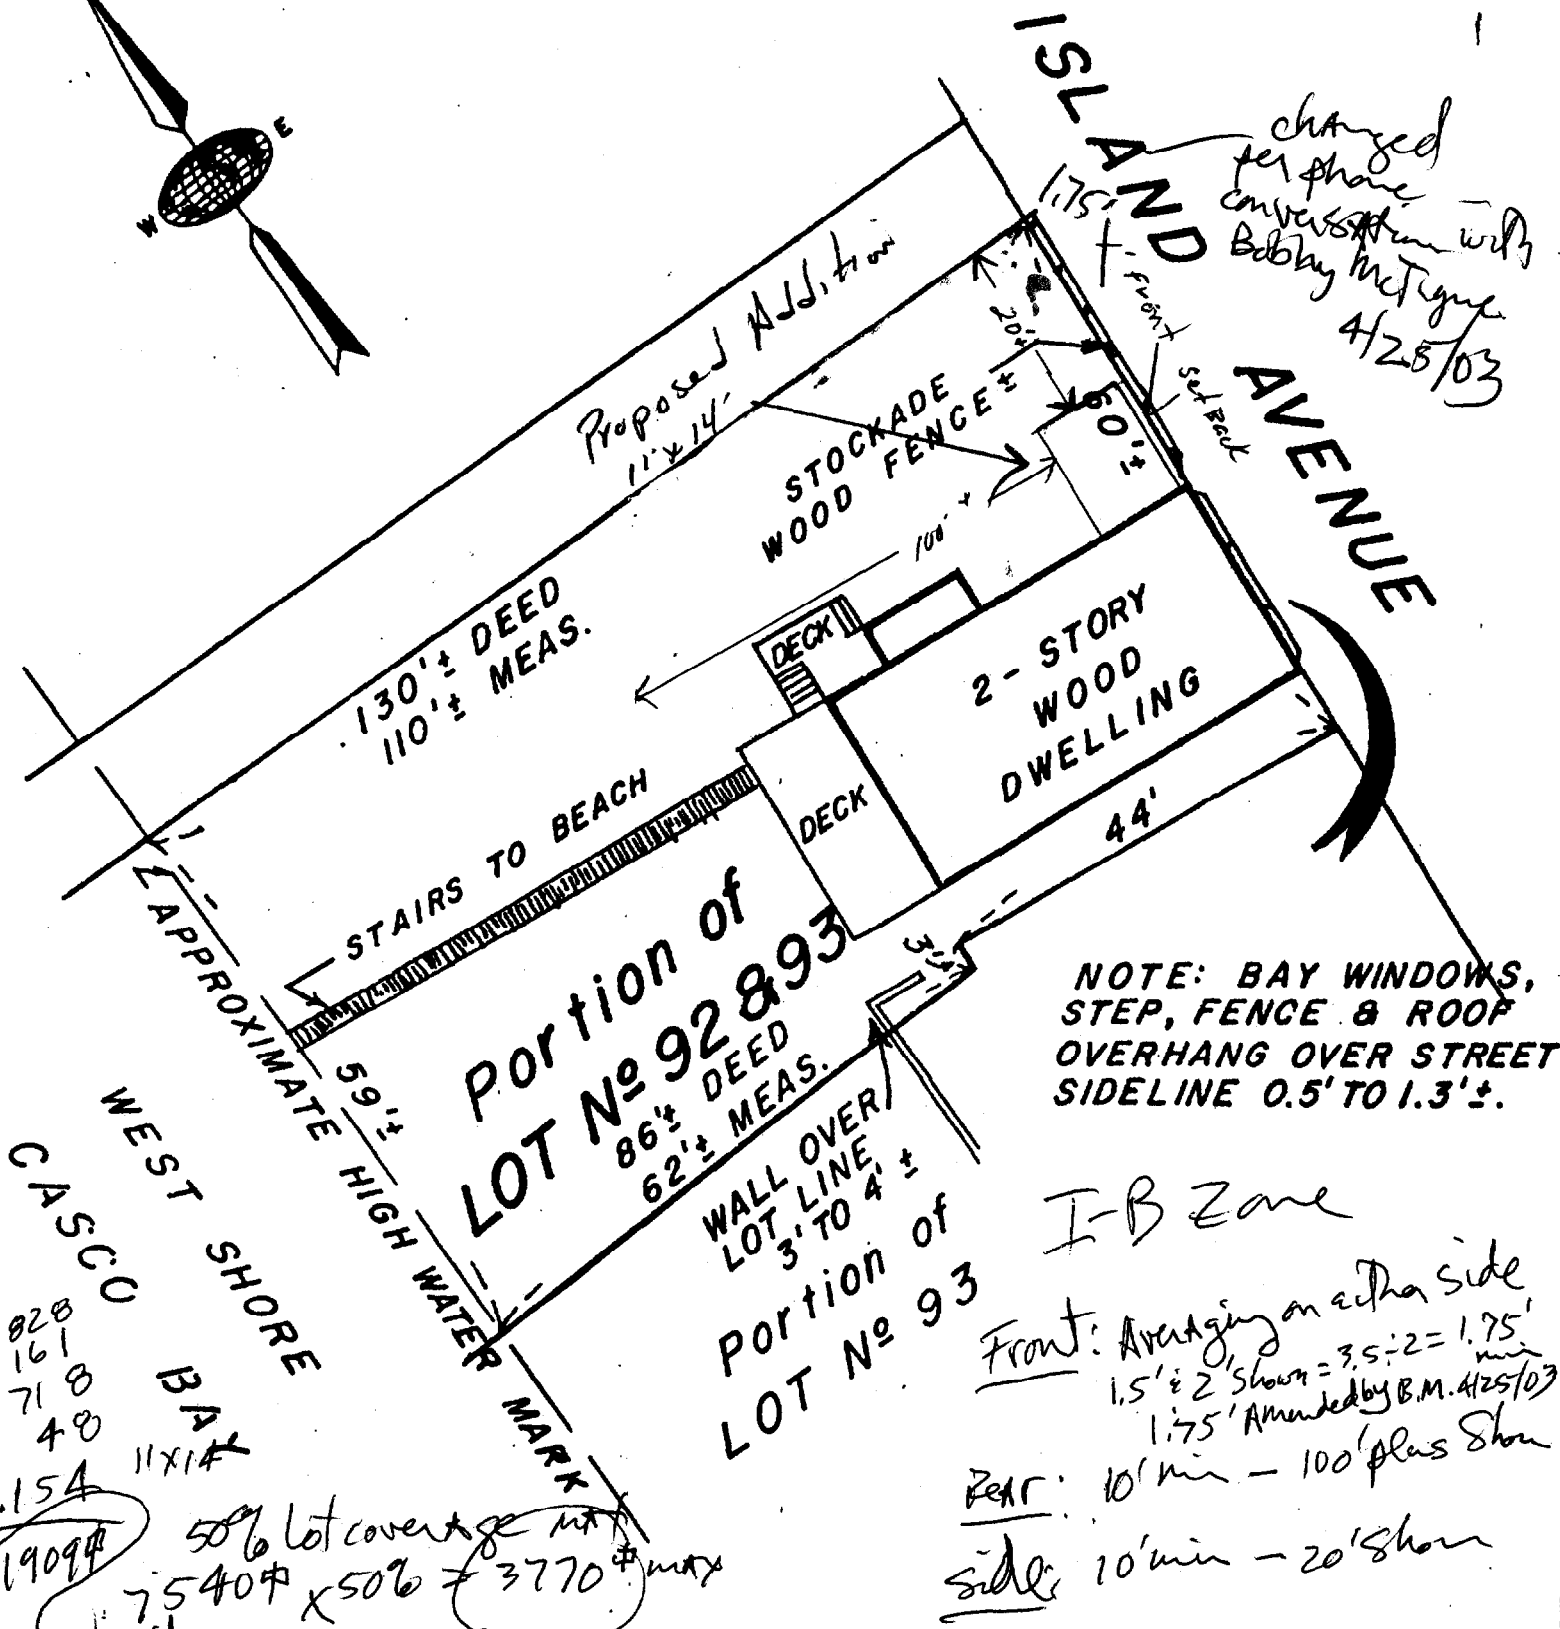 1
ISLAND
AVENUE
E
W
changed
per phone
conversation with
Bobby McTigue
4/25/03
1.75'
+-
front
set Back
Proposed Addition
11' x 14'
20'±
60'±
STOCKADE
WOOD FENCE ±
100' +
130'± DEED
110'± MEAS.
DECK
2-STORY
WOOD
DWELLING
DECK
44'
STAIRS TO BEACH
3'±
Portion of
LOT Nº 92 & 93
86'± DEED
62'± MEAS.
59'±
APPROXIMATE HIGH WATER MARK
WALL OVER
LOT LINE
3' TO 4' ±
Portion of
LOT Nº 93
NOTE: BAY WINDOWS,
STEP, FENCE & ROOF
OVERHANG OVER STREET
SIDELINE 0.5' TO 1.3'±.
WEST SHORE
CASCO BAY
I-B Zone
Front: Averaging on either side
1.5' & 2' shown = 3.5 ÷ 2 = 1.75'
min
1.75' Amended by B.M. 4/25/03
Rear: 10' min - 100' plus Show
side: 10' min - 20' Show
828
161
718
48
154 11X14
1909#
50% lot coverage max
7540# x 50% = 3770# max